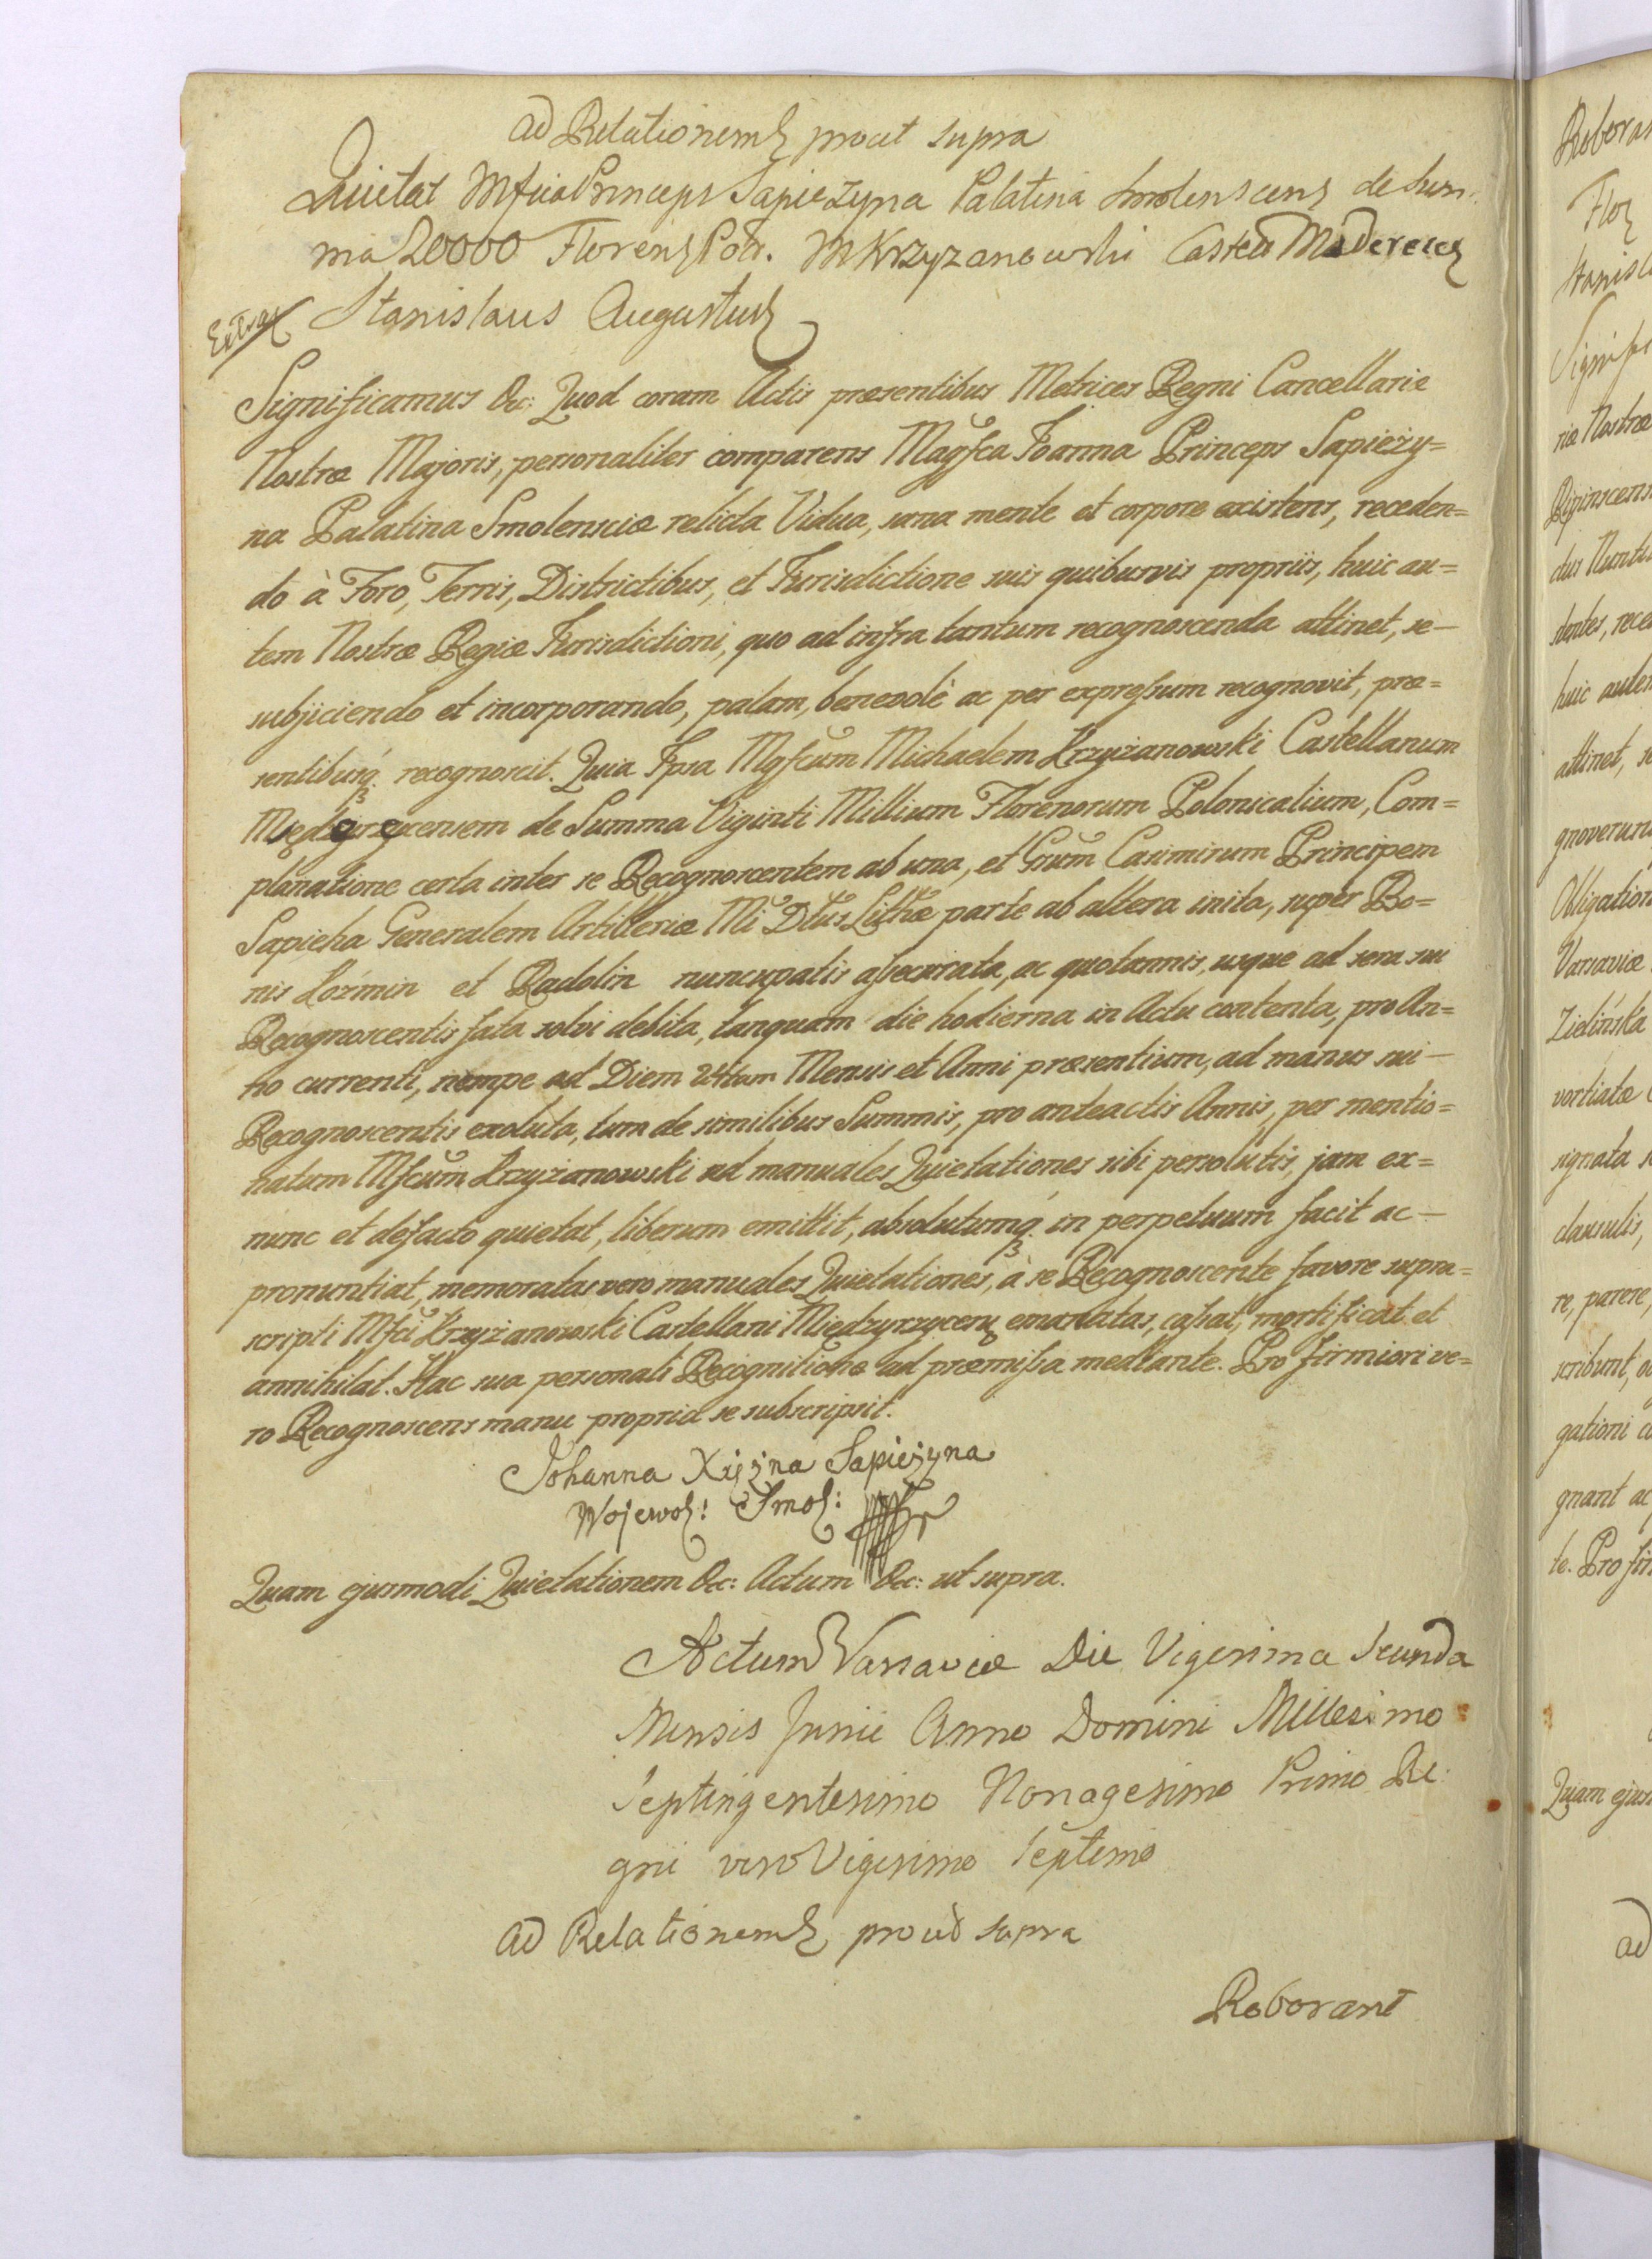 ad Relationem prout supra
Quietat Mfica Princeps Sapiezyna Palatina Smolenscens de Sum
ma 20000 Floren Pol. M Krzyzanowski Castell
Extrac
Stanislaus Augustus
Significamus &c: Quod coram Actis præsentibus Metrices Regni Cancellariæ
Nostræ Majoris, personaliter comparens Magfca Joanna Princeps Sapieży=
na Palatina Smolensciæ relicta Vidua, sana mente et corpore existens, receden=
do à Foro, Terris, Districtibus, et Jurisdictione suis quibusvis propriis, huic au=
tem Nostræ Regiæ Jurisdictioni, quo ad infra tantum recognoscenda attinet, se—
subjiciendo et incorporando, palam, benevolè ac per expressum recognovit, præ=
sentibusq. recognoscit. Quia Ipsa Mgfcum Michaelem Krzyżanowski Castellanum
de Summa Viginti Millium Florenorum Polonicalium, Com=
planatione certa inter se Recognoscentem ab una, et Grum Casimirum Principem
Sapieha Generalem Artilleriæ Mi Dtus Lithæ parte ab altera inita, super Bo=
nis Lozmin et Radolin nuncupatis assecurata, ac quotannis, usque ad sera sui
Recognoscentis fata solvi debita, tanquam die hodierna in Actu contenta, pro An=
no currenti, nempe ad Diem 24tam Mensis et Anni præsentium, ad manus sui—
Recognoscentis exoluta, tum de similibus Summis, pro anteactis Annis, per mentio=
natum Mfcum Krzyżanowski ad manuales Quietationes sibi persolutis, jam ex=
nunc et defacto quietat, liberum emittit, absolutumq. in perpetuum facit ac—
pronuntiat, memoratas vero manuales Quietationes, à se Recognoscente favore supra=
scripti Mfci Krzyżanowski Castellani Międzyrzycens emanatas, cassat, mortificat et
annihilat. Hac sua personali Recognitione ad præmissa mediante. Pro firmiori ve=
ro Recognoscens manu propria se subscripsit.
Johanna Xiężna Sapieżyna
Wojewod: Smol:
Quam ejusmodi Quietationem &c: Actum &c: ut supra.
Actum Varsaviæ Die Vigesima Secunda
Mensis Junii Anno Domini Millesimo
Septingentesimo Nonagesimo Primo Re:
gni vero Vigesimo Septimo
ad Relationem prout supra
Roborant
Roboran
Flor
Stanisla
Signific
riæ Nostræ
dus Nunti
huic autem
attinet, se
gnoverun
Obligation
Varsaviæ
Zielińska
vortiatæ
signata
clausulis,
re, parere
scribunt,
gationi
gnant ac
te. Pro fir
Quam ejus
ad